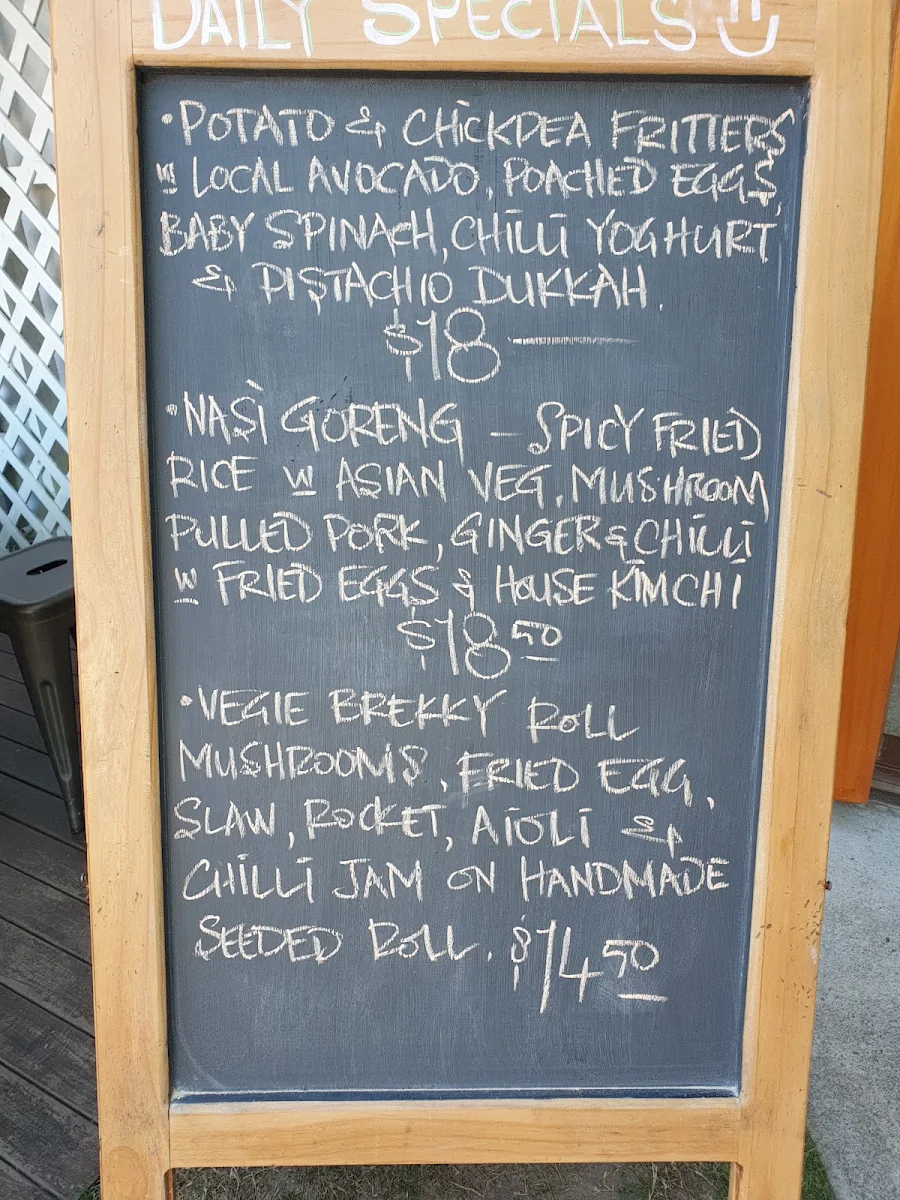 DAILY SPECIALS
• POTATO & CHICKPEA FRITTERS
w LOCAL AVOCADO, POACHED EGGS,
BABY SPINACH, CHILLI YOGHURT
& PISTACHIO DUKKAH.
$18 —
• NASI GORENG – SPICY FRIED
RICE w ASIAN VEG, MUSHROOM
PULLED PORK, GINGER & CHILLI
w FRIED EGGS & HOUSE KIMCHI
$18 50
• VEGIE BREKKY ROLL
MUSHROOMS, FRIED EGG,
SLAW, ROCKET, AIOLI &
CHILLI JAM ON HANDMADE
SEEDED ROLL. $14 50